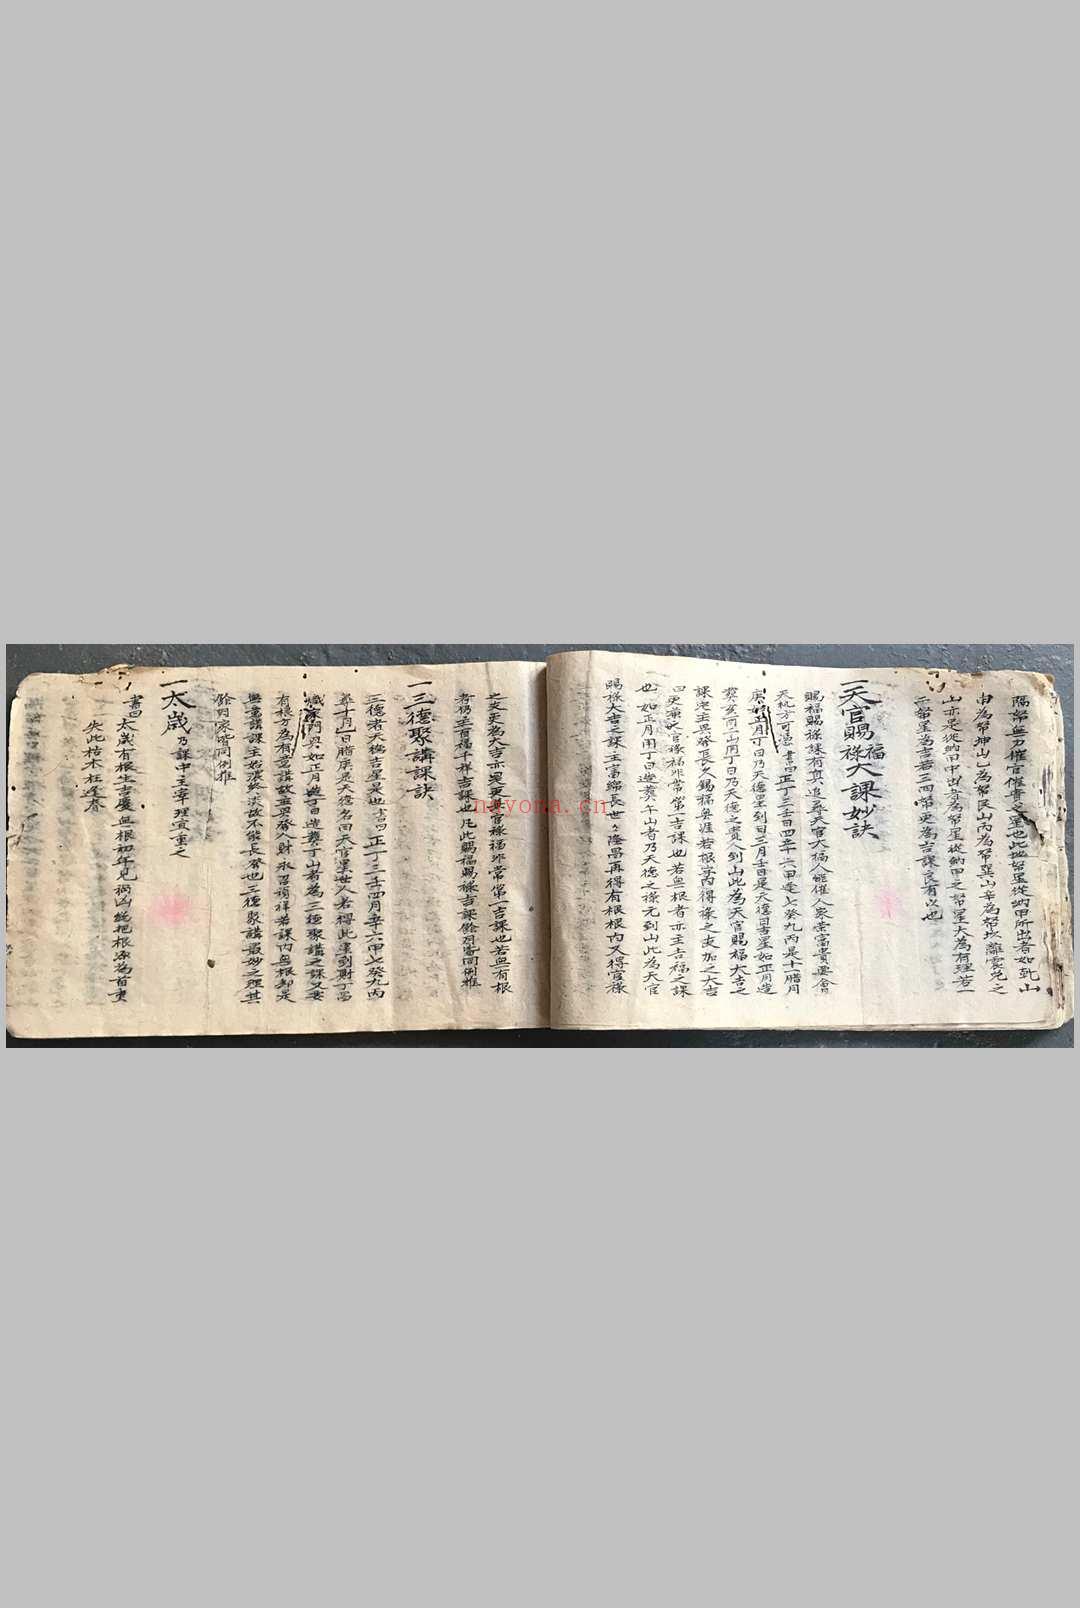 陽幇無力權官催貴之星也此地幇星從納甲所出者如乾山
甲為幇坤山乙為幇艮山丙為幇巽山辛為幇坎離震兌之
山亦是從納甲中出者為幇星從納甲之幇星大為有理若一
二幇星為吉若三四幇更為吉課良有以也
一天官賜福祿大課妙訣
賜福賜祿課有真追尋天官大福人能催人家榮富貴要會
天机方可憑 書曰正丁三壬日四辛六甲逢七癸九丙是十一臘月
庚如正月丁日乃天德星到日三月壬日是天德日吉星如正月造
葬亥向二山用丁日乃天德之貴人到山此為天官賜福大吉之
課宅主興發長久錫福無涯若根字內得祿之支加之大吉
曰更兼天官祿福非常第一吉課也若無根者亦主吉福之課
也 如正月用丁日造葬午山者乃天德之祿元到山此為天官
賜祿大吉之課主富綿長世々隆昌再得有根根內又得官祿
之支更為大吉亦是更官祿福非常第一吉課也若無有根
者仍主百福千祥吉課也凡此賜福賜祿吉課餘月皆同例推
一三德聚講課訣
三德者天德吉星是也書曰正丁三壬四月辛六甲七癸九丙
尋十月乙日臘庚是天德名曰天官星世人若得此星到財丁富
熾家門興如正月逢丁日造葬丁山者為三德聚講之課又要
有根方為有憑講故主興發人財永召禎祥若課內無根却是
無憑講課主始濃終淡故不能長發也三德聚講最妙之理其
餘別家皆同例推
一太歲乃課中主宰理宜重之
書曰太歲有根生吉慶無根初年見禍凶統把根源為首吏
失此枯木枉逢春
nayona.cn